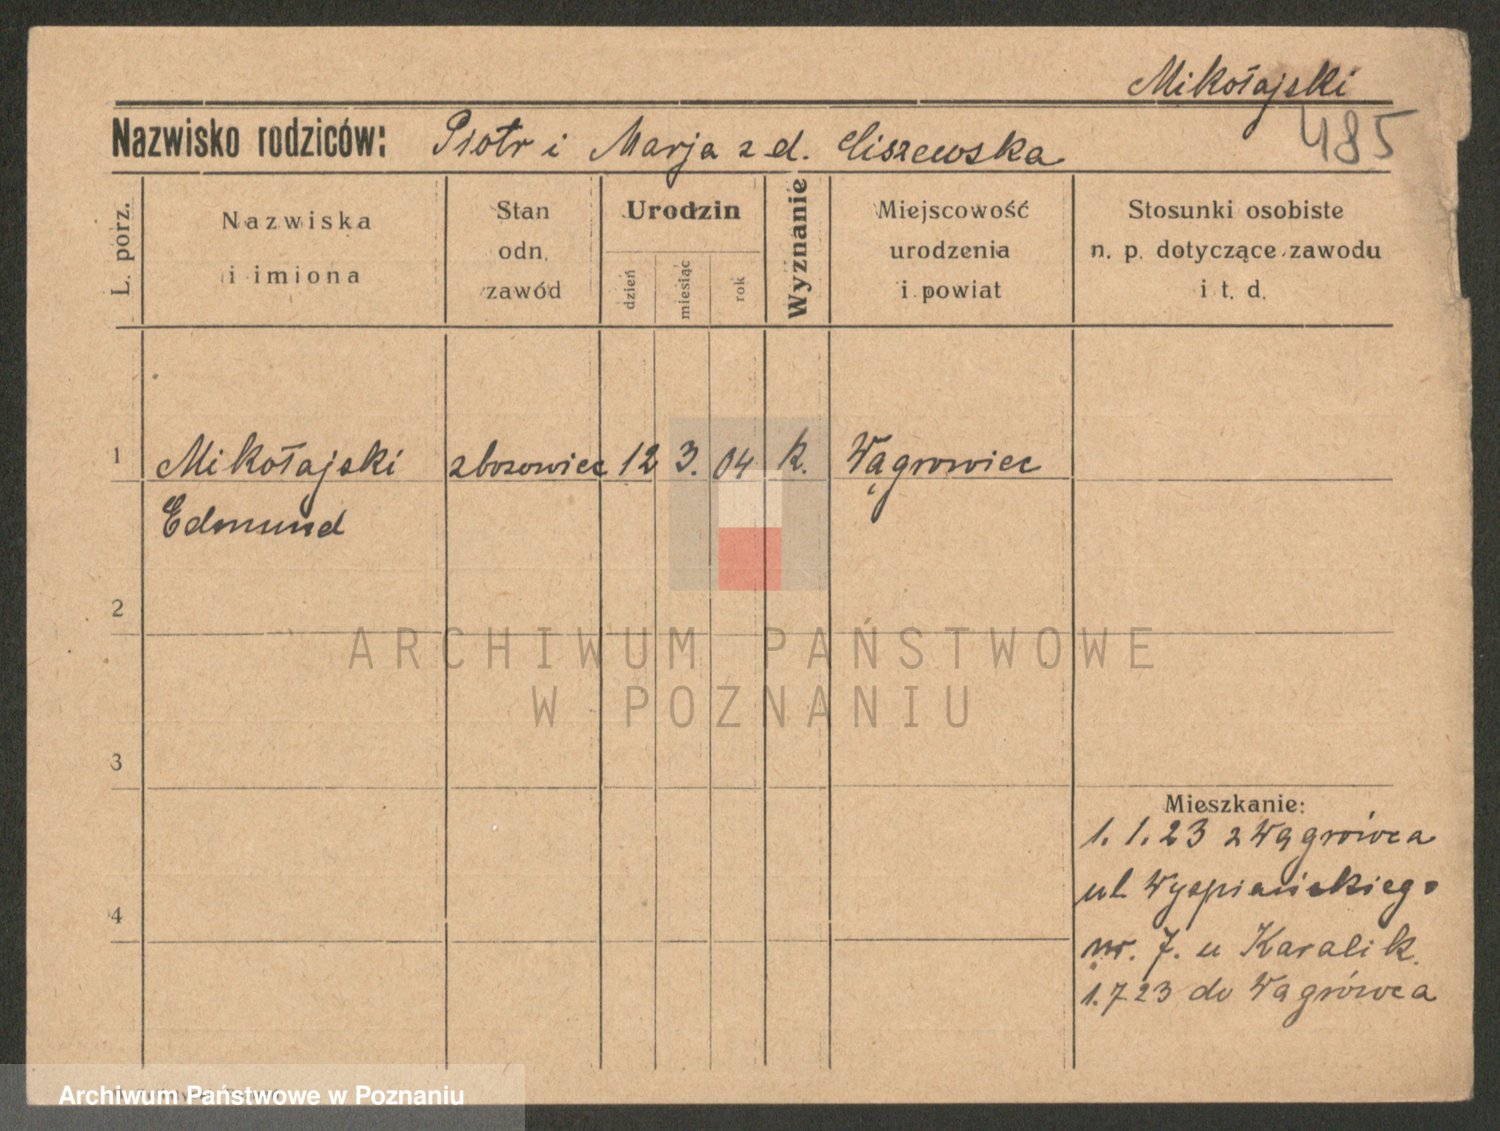 Mikołajski
485
Nazwisko rodziców: Piotr i Marja z d. Ciszewska
L. porz.
Nazwiska
i imiona
Stan
odn.
zawód
Urodzin
dzień
miesiąc
rok
Wyznanie
Miejscowość
urodzenia
i powiat
Stosunki osobiste
n. p. dotyczące zawodu
i t. d.
1 Mikołajski zbozowiec 12 3. 04 k. Wągrowiec
Edmund
2
ARCHIWUM PAŃSTWOWE
W POZNANIU
3
Mieszkanie:
1. 1. 23 z Wągrówca
ul. Wyspiańskiego
4
nr. 7. u Karalik.
1. 7 23 do Wągrówca
Archiwum Państwowe w Poznaniu